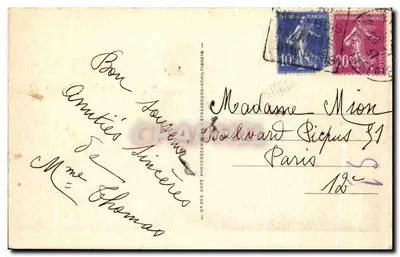 Bon souvenir
Amitiés sincères
de
Mme Thomas
Cie DES ARTS PHOTOMÉCANIQUES STRASBOURG-SCHILTIGHEIM
REPUBLIQUE FRANÇAISE
10c
20c
Madame Mion
Boulvard Picpus 51
Paris
12e
51